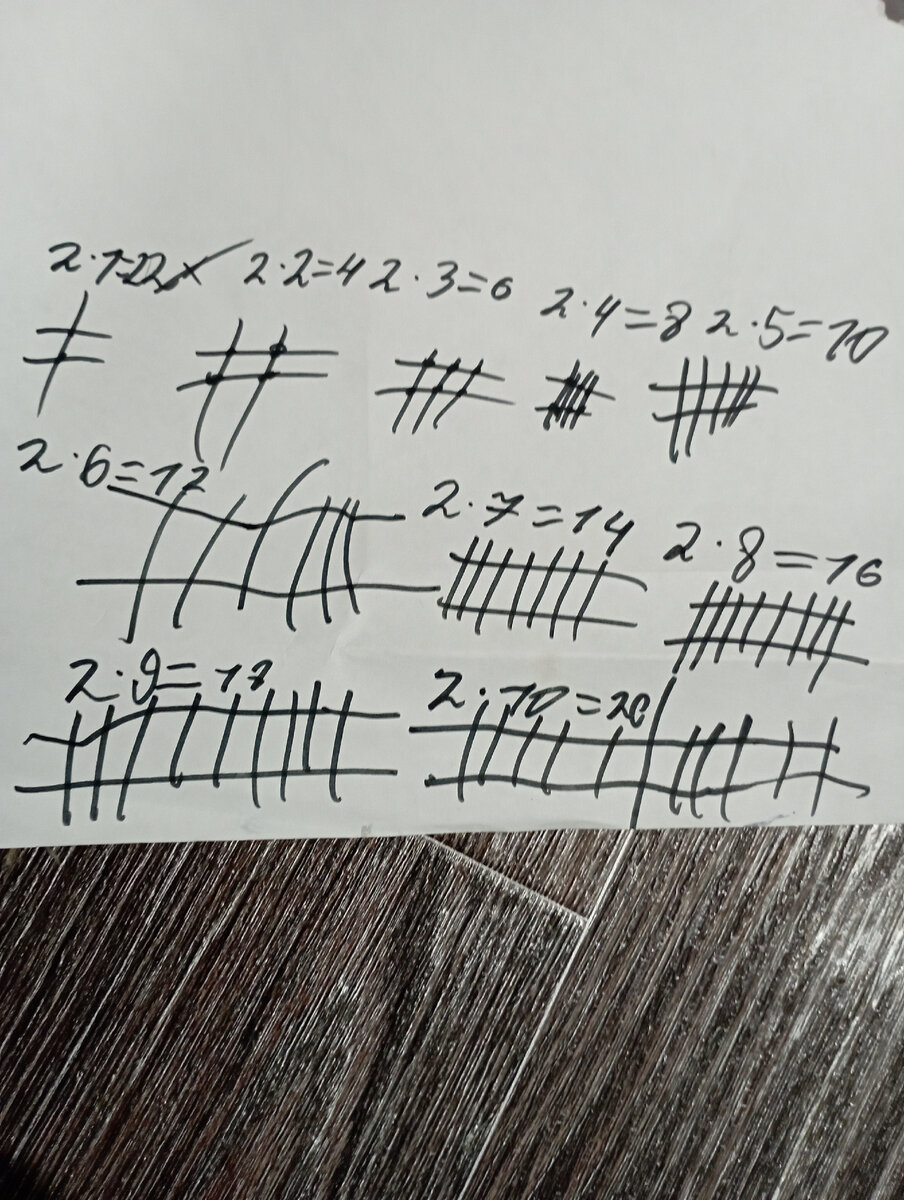 2·2=4 2·3=6 2·4=8 2·5=10
2·6=12 2·7=14 2·8=16
2·9=18 2·10=20